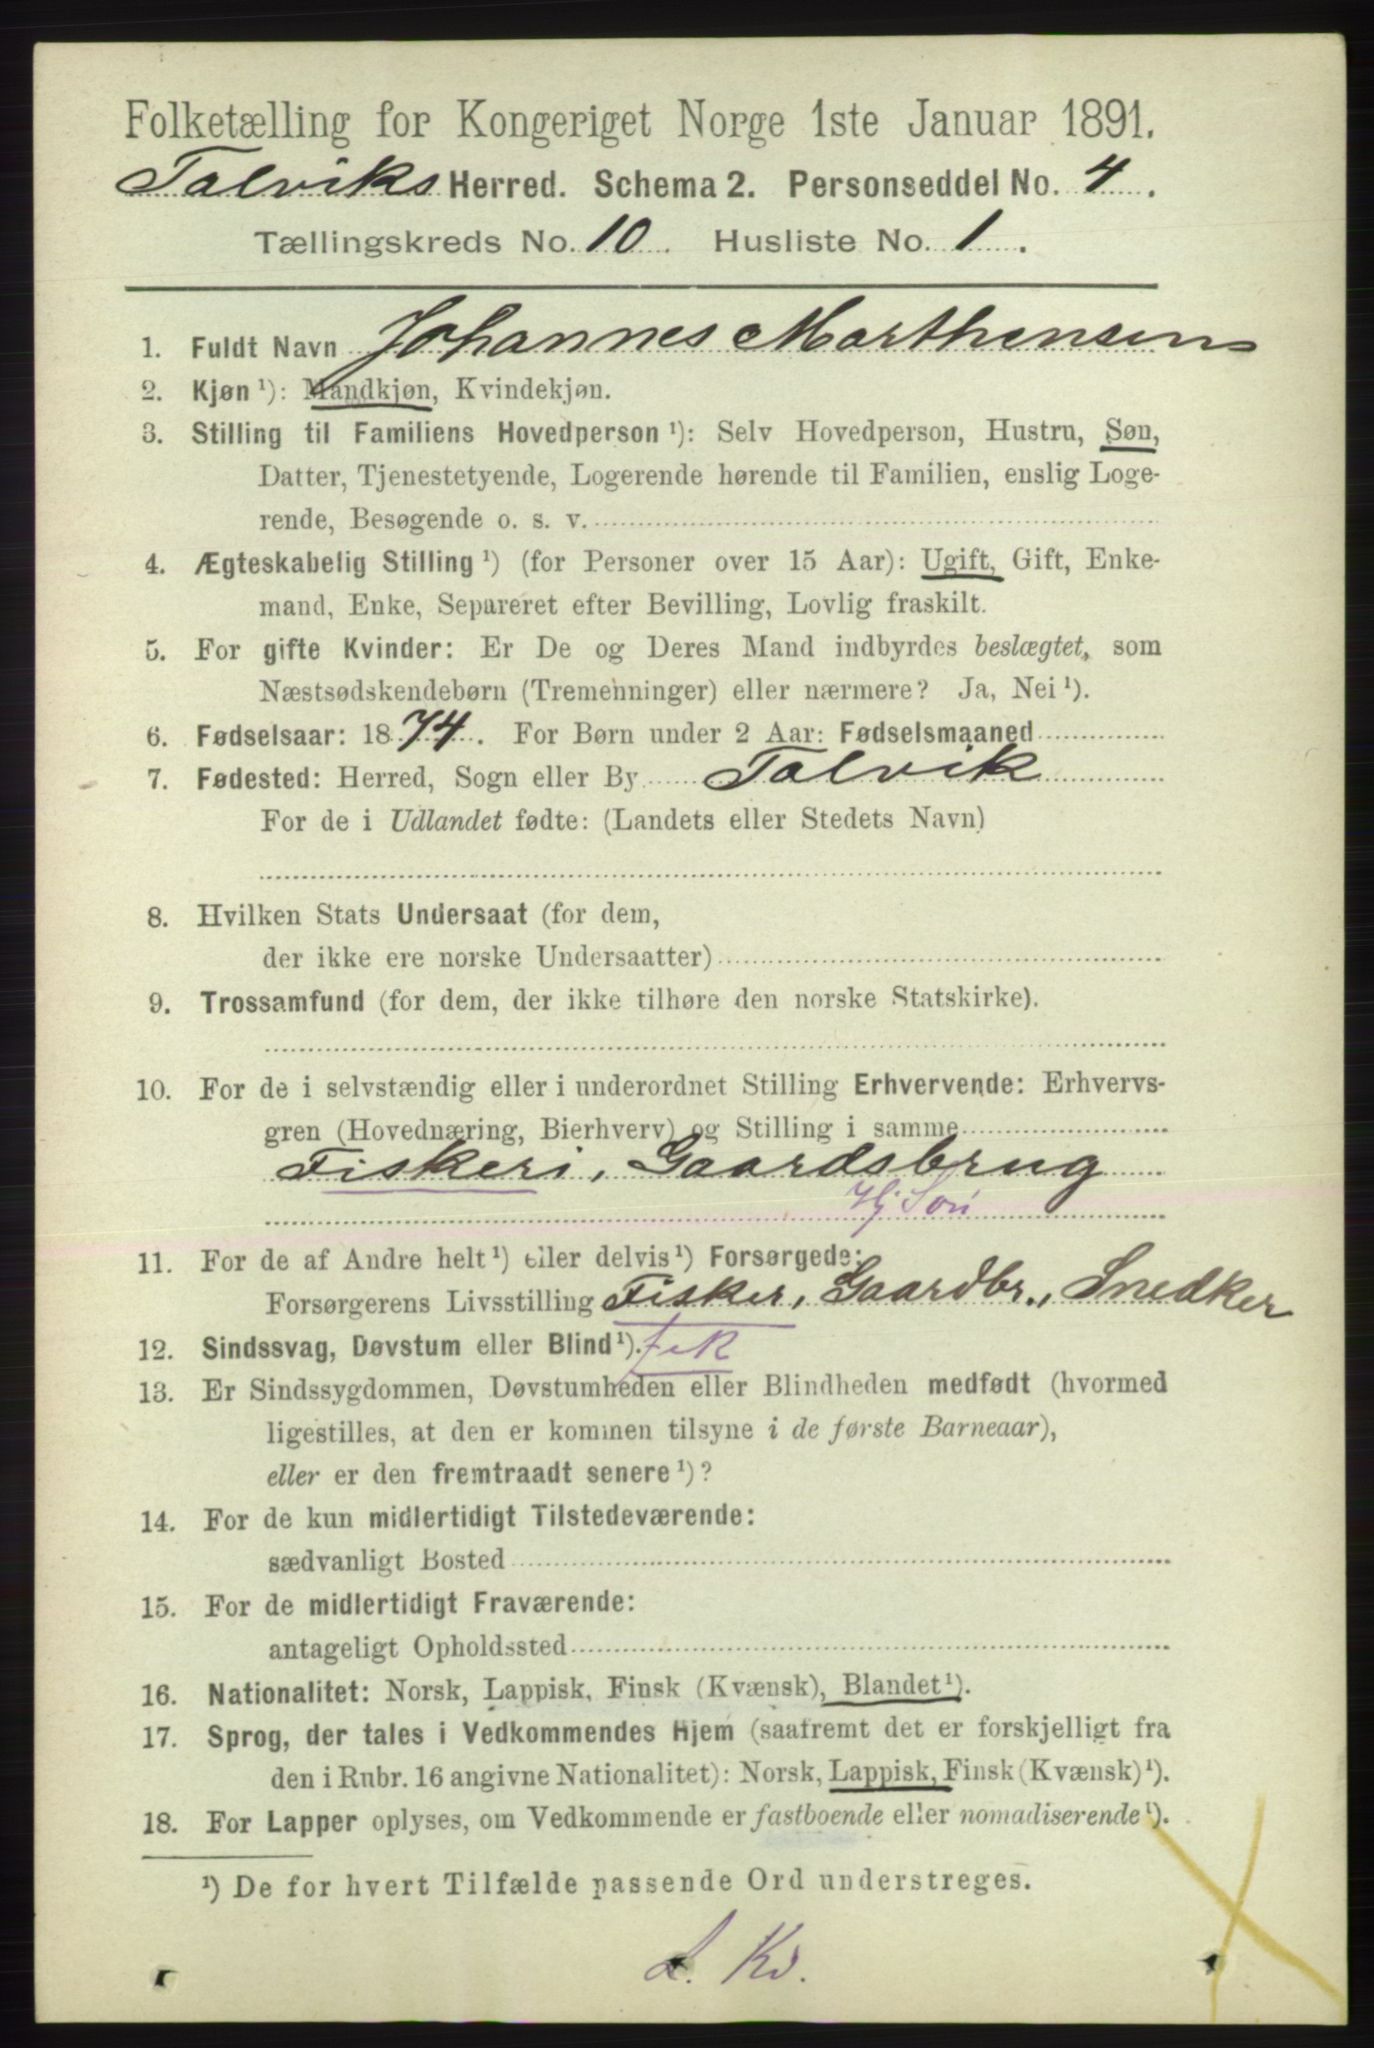 Folketælling for Kongeriget Norge 1ste Januar 1891.
Talviks Herred. Schema 2. Personseddel No. 4.
Tællingskreds No. 10. Husliste No. 1.
1. Fuldt Navn Johannes Marthensen
2. Kjøn ¹): Mandkjøn, Kvindekjøn.
3. Stilling til Familiens Hovedperson ¹): Selv Hovedperson, Hustru, Søn,
Datter, Tjenestetyende, Logerende hørende til Familien, enslig Loge-
rende, Besøgende o. s. v.
4. Ægteskabelig Stilling ¹) (for Personer over 15 Aar): Ugift, Gift, Enke-
mand, Enke, Separeret efter Bevilling, Lovlig fraskilt.
5. For gifte Kvinder: Er De og Deres Mand indbyrdes beslægtet, som
Næstsødskendebørn (Tremenninger) eller nærmere? Ja, Nei ¹).
6. Fødselsaar: 1874. For Børn under 2 Aar: Fødselsmaaned
7. Fødested: Herred, Sogn eller By Talvik
For de i Udlandet fødte: (Landets eller Stedets Navn)
8. Hvilken Stats Undersaat (for dem,
der ikke ere norske Undersaatter)
9. Trossamfund (for dem, der ikke tilhøre den norske Statskirke).
10. For de i selvstændig eller i underordnet Stilling Erhvervende: Erhvervs-
gren (Hovednæring, Bierhverv) og Stilling i samme
Fiskeri, Gaardsbrug
Hj Søn
11. For de af Andre helt ¹) eller delvis ¹) Forsørgede:
Forsørgerens Livsstilling Fisker, Gaardbr., Snedker
12. Sindssvag, Døvstum eller Blind ¹).
13. Er Sindssygdommen, Døvstumheden eller Blindheden medfødt (hvormed
ligestilles, at den er kommen tilsyne i de første Barneaar),
eller er den fremtraadt senere ¹)?
14. For de kun midlertidigt Tilstedeværende:
sædvanligt Bosted
15. For de midlertidigt Fraværende:
antageligt Opholdssted
16. Nationalitet: Norsk, Lappisk, Finsk (Kvænsk), Blandet ¹).
17. Sprog, der tales i Vedkommendes Hjem (saafremt det er forskjelligt fra
den i Rubr. 16 angivne Nationalitet): Norsk, Lappisk, Finsk (Kvænsk) ¹).
18. For Lapper oplyses, om Vedkommende er fastboende eller nomadiserende ¹).
¹) De for hvert Tilfælde passende Ord understreges.
L. Kv.